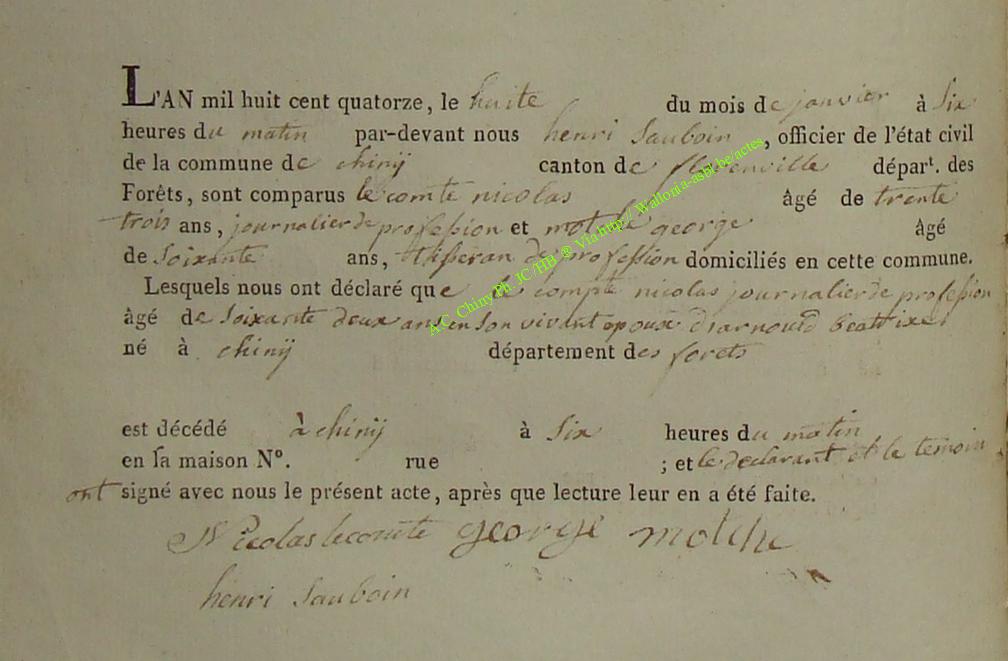 L'AN mil huit cent quatorze, le huite du mois de janvier à six
heures du matin par-devant nous henri Sauboin, officier de l'état civil
de la commune de chinÿ canton de florenville départ. des
Forêts, sont comparus le comte nicolas âgé de trente
trois ans, journalier de profession et george âgé
de Soixante ans, tisseran de profession domiciliés en cette commune.
Lesquels nous ont déclaré que le compte nicolas journalier de profession
âgé de Soixante deux ans en Son vivant epoux d'arnould beattrixe
né à chinÿ département des forets
est décédé à chinÿ à Six heures du matin
en sa maison N°. rue ; et le declarant et le temoin
ont signé avec nous le présent acte, après que lecture leur en a été faite.
Nicolas lecomte george
henri Sauboin
A.C. Chiny Ph. JC /HB ® Via http:// Wallonia-asbl.be/actes